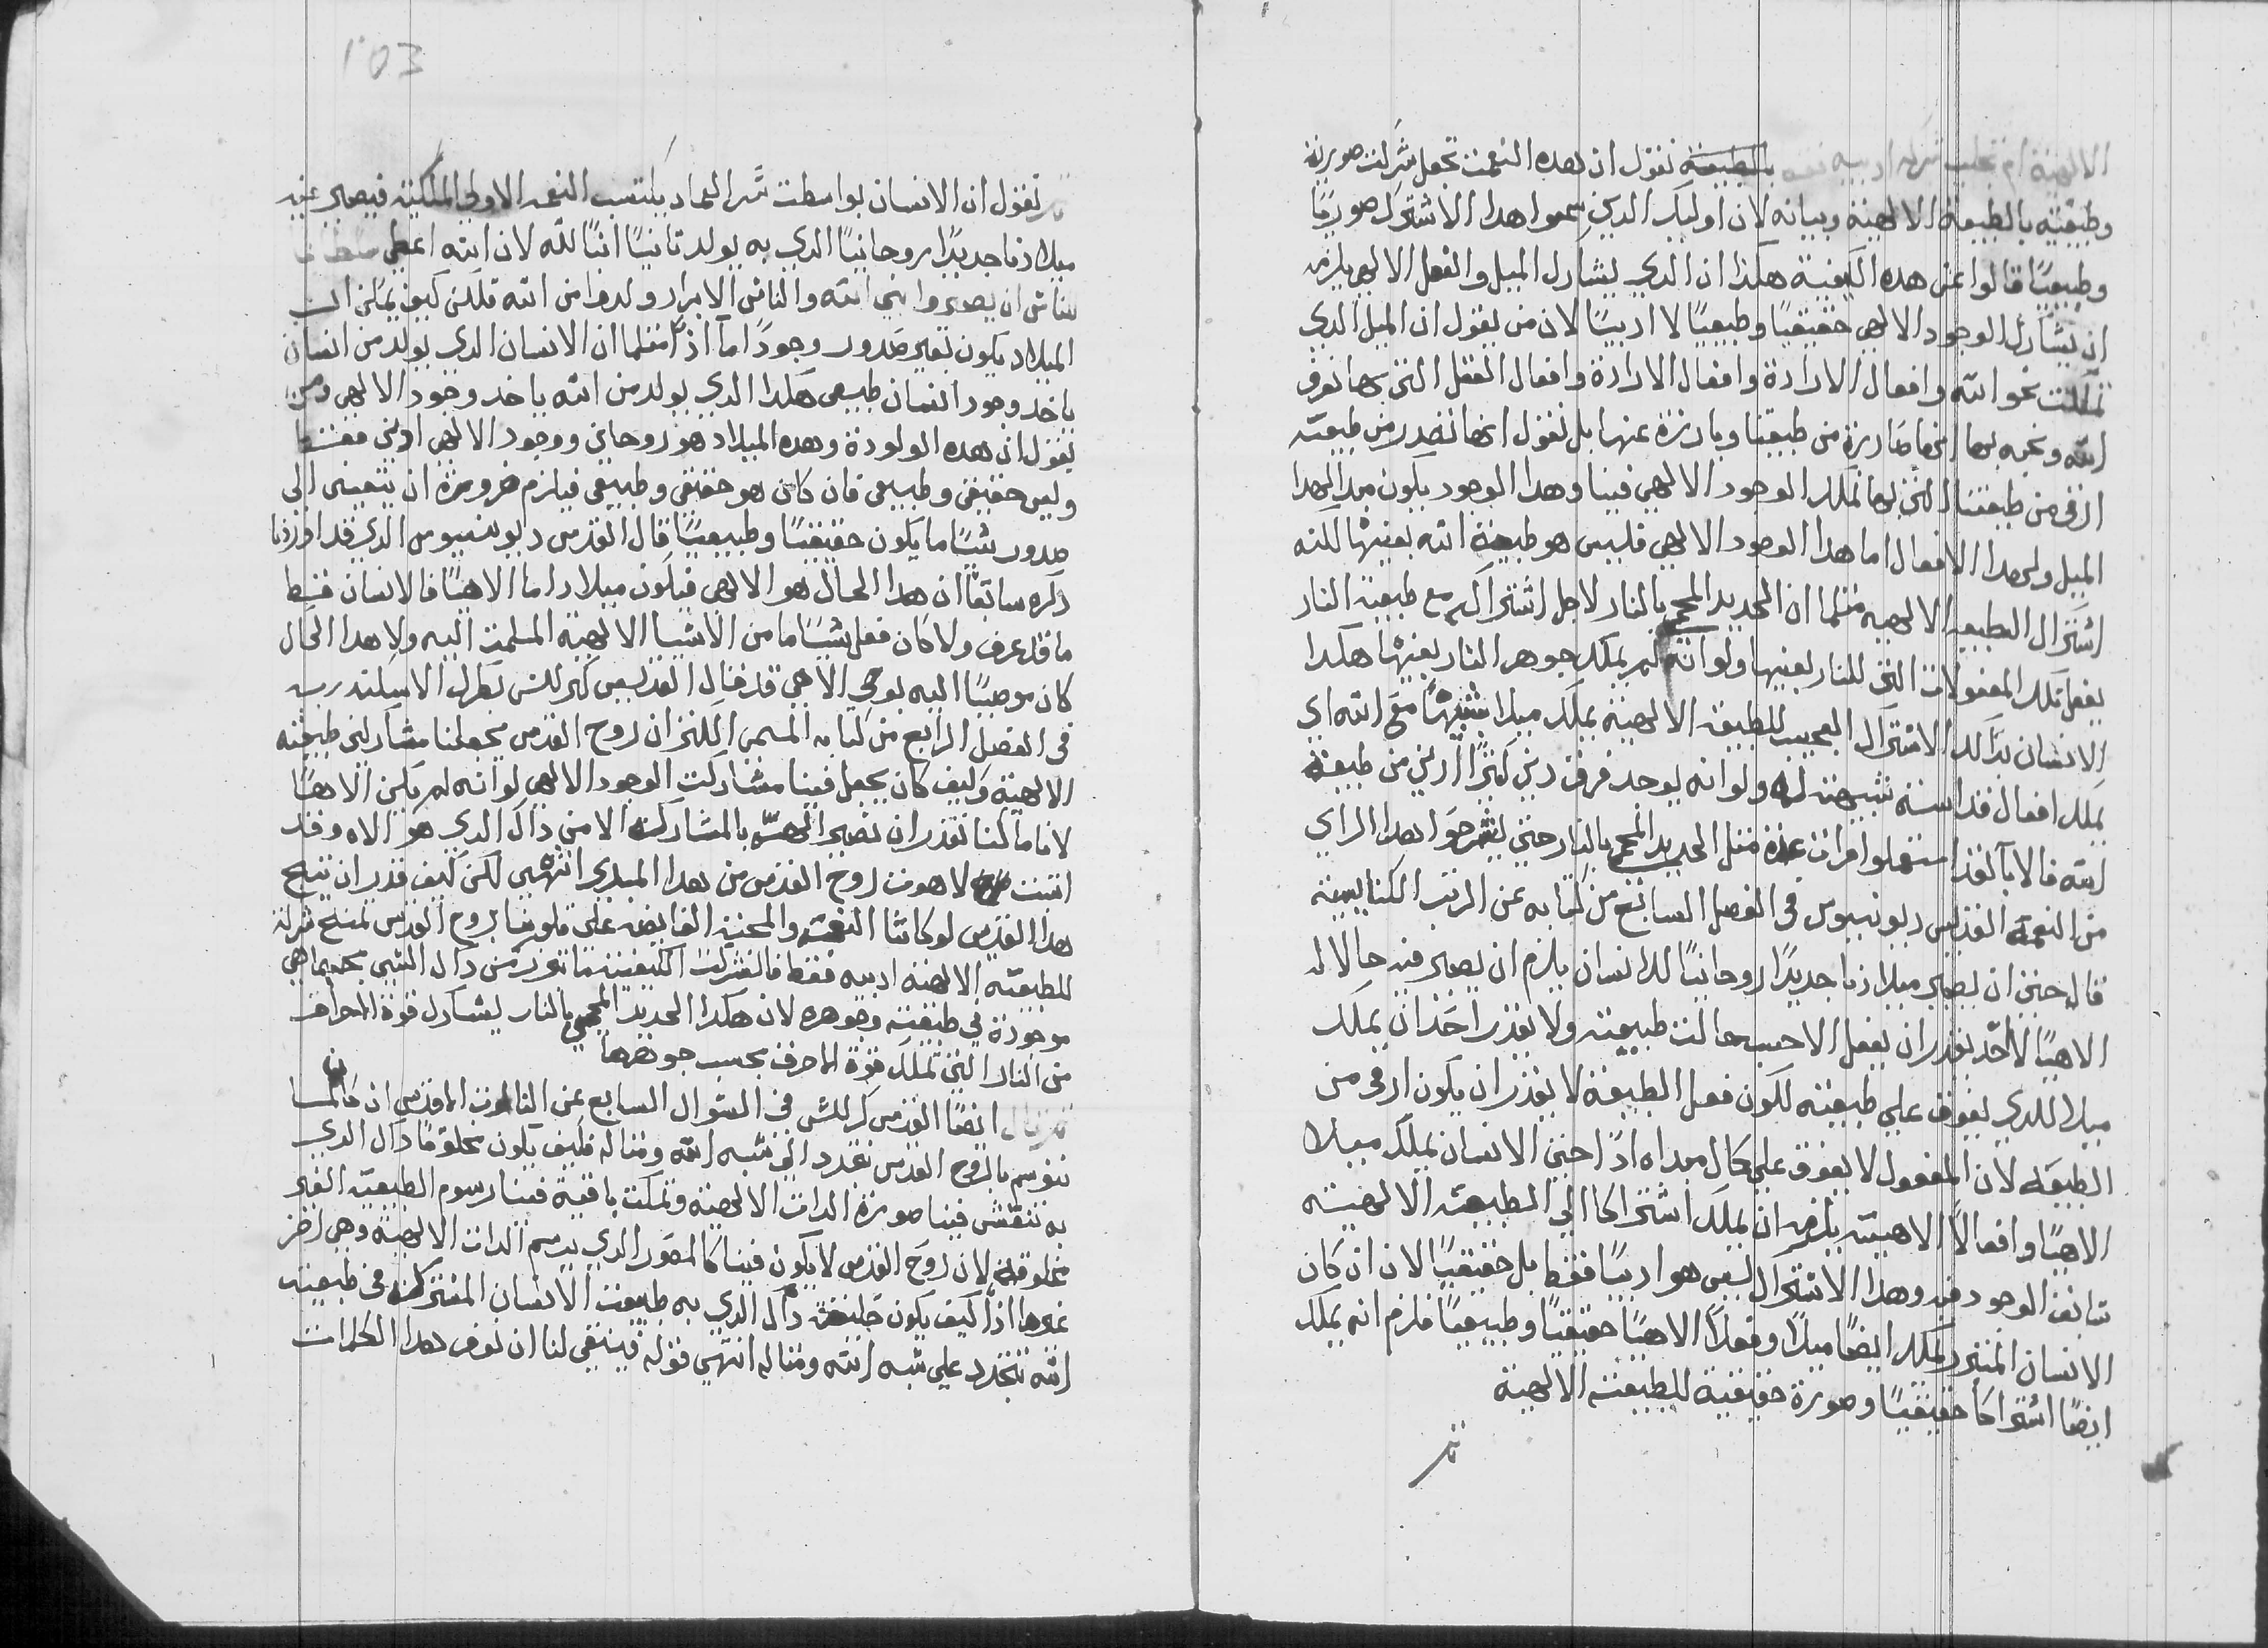 الالهية ام تجلب شركه ادبيه فقط بالطبيعة نقول ان بهده النعمت تحعل شركت صورية
وطبيعية بالطبيعة الالهية وبيانه لان اوليك الدي سموا هدا الاشتراك صوريًا
وطبيعيًا قالوا عن هده الكيفية هكدا ان الدي يشارك الميل والفعل الالهي يلزمه
ان يشارك الوجود الالهي حقيقيًا وطبيعيًا لا ادبيًا لان من يقول ان الميل الدي
نملكه نحو الله وافعال الارادة وافعال العقل التي بها نعرف
الله ونحبه بها انها صادرة من طبيعتنا وبارزة عنها بل نقول انها تصدر من طبيعة
ارفع من طبيعتنا التي بها نملك الوجود الالهي فينا وهدا الوجود يكون مبدا لهدا
الميل ولهدا الافعال اما هدا الوجود الالهي فليس هو طبيعة الله بعينها لكنه
اشتراك الطبيعه الالهيه مثلما ان الحديد المحمي بالنار لاجل اشتراكه مع طبيعة النار
يفعل تلك المفعولات التي للنار بعينها ولو انه لم يملك جوهر النار بعينها هكدا
الانسان بداك الاشتراك العجيب للطبيعة الالهية يملك ميلا شبيهًا مع الله اي
يملك افعال قداسته شبيهة له ولو انه يوجد فرق دني كثيرًا ادني من طبيعة
الله فالابآ لقد استعملوا مرات عدة متل الحديد المحمي بالنار حتي يشرحوا بهدا الراي
من النعمة القديس ديونيسيوس في الفصل السابع من كتابه عن الرتب الكنايسية
قال حتي ان يصير ميلادنا جديدًا روحانيًا للانسان يلزم ان يصير فيه حالا له
الاهيًا لا احد يقدر ان يفعل الا حسب حالت طبيعته ولا يقدر احد ان يملك
ميلا للدي يفوق علي طبيعته لكون فعل الطبيعة لا يقدر ان يكون ارفع من
الطبيعه لان المفعول لا يفوق علي كال مبداه ادًا حتي الانسان يملك ميلا
الاهيًا وافعالًا الاهيته يلزمه ان يملك اشتراكا الي الطبيعة الالهيته
سابق الوجود فيه وهدا الاشتراك ليس هو ادبيًا فقط بل حقيقيًا لان ان كان
الانسان المتبرر يملك ايضًا ميلًا وفعلًا الاهيًا حقيقيًا وطبيعيًا فلزم انه يملك
ايضًا اشتراكا حقيقيًا وصورة حقيقية للطبيعته الالهية
103
نقول ان الانسان بواسطت سر العماد يكتسب النعمه الاولي الملكية فيصير عنه
ميلادنا جديدًا روحانيًا الدي به يولد تانيًا ابنًا لله لان الله اعطي
للناس ان يصيروا بني الله والناس الابرار ولدوا من الله فلكن كيف يمكن ان
الميلاد يكون بغير صدور وجودًا اما ادًا مثلما ان الانسان الدي يولد من انسان
ياخد وجود انسان طبيعي هكدا الدي يولد من الله ياخد وجود الالهي ومن
يقول ان هده الولودة وهده الميلاد هو روحاني ووجود الالهي ادبي فقط
وليس حقيقي وطبيعي فان كان هو حقيقي وطبيعي فيلزم ضرورة ان ينتهي الي
صدور شيًا ما يكون حقيقيًا وطبيعيًا قال القدس ديونسيوس الدي قد اوردنا
دكره سابقًا ان هدا الحال هو الالهي فيكون ميلادا ما الاهيًا فالانسان فقط
ما قد عرف ولا كان فعل شيًا ما من الاشيا الالهية المسلمت اليه ولا هدا الحال
كان موصيًا اليه بوحي الاهي قد قال القديس كيرللس بطرك الاسكندريه
في الفصل الرابع من كتابه المسمي الكنز ان روح القدس يجعلنا مشاركي طبيعته
الالهية وكيف كان يجعل فينا مشاركت الوجود الالهي لو انه لم يكن الاهًا
لاننا ما كنا نقدر ان نصير الهيه بالمشاركه الا من داك الدي هو الاه وقد
اتبت لاهوت روح القدس من بهدا المبدي انتهي لكن كيف قدر ان ينتج
هدا القدس لو كانتا النعمة والمحبة الفايضه علي قلوبنا بروح القدس تمنح شركه
للطبيعة الالهية ادبيه فقط فالشركت الكيفية ما تورد من داك الشي بحسبما هي
موجودة في طبيعته وجوهره لان هكدا الحديد المحمي بالنار يشارك قوة الاحراق
من النار التي تملك قوة الاحرق بحسب جوهرها
ايضًا القدس كرللس في السوال السابع عن التالوت الاقدس ان كاننا
نتوسم بالروح القدس نتجدد الي شبه الله ومتاله فكيف يكون مخلوقًا داك الدي
به تنقش فينا صورة الدات الالهيه وتمكث باقية فينا رسوم الطبيعة الغير
مخلوقه لان روح القدس لا يكون فينا كالمصور الدي يرسم الدات الالهية وهي اخر
غيرها ادًا كيف يكون خليقه داك الدي به طبيعت الانسان المشتركه في طبيعة
الله تتجدد علي شبه الله ومتاله انتهي قوله فينبغي لنا ان نعرف بهدا الكلمات